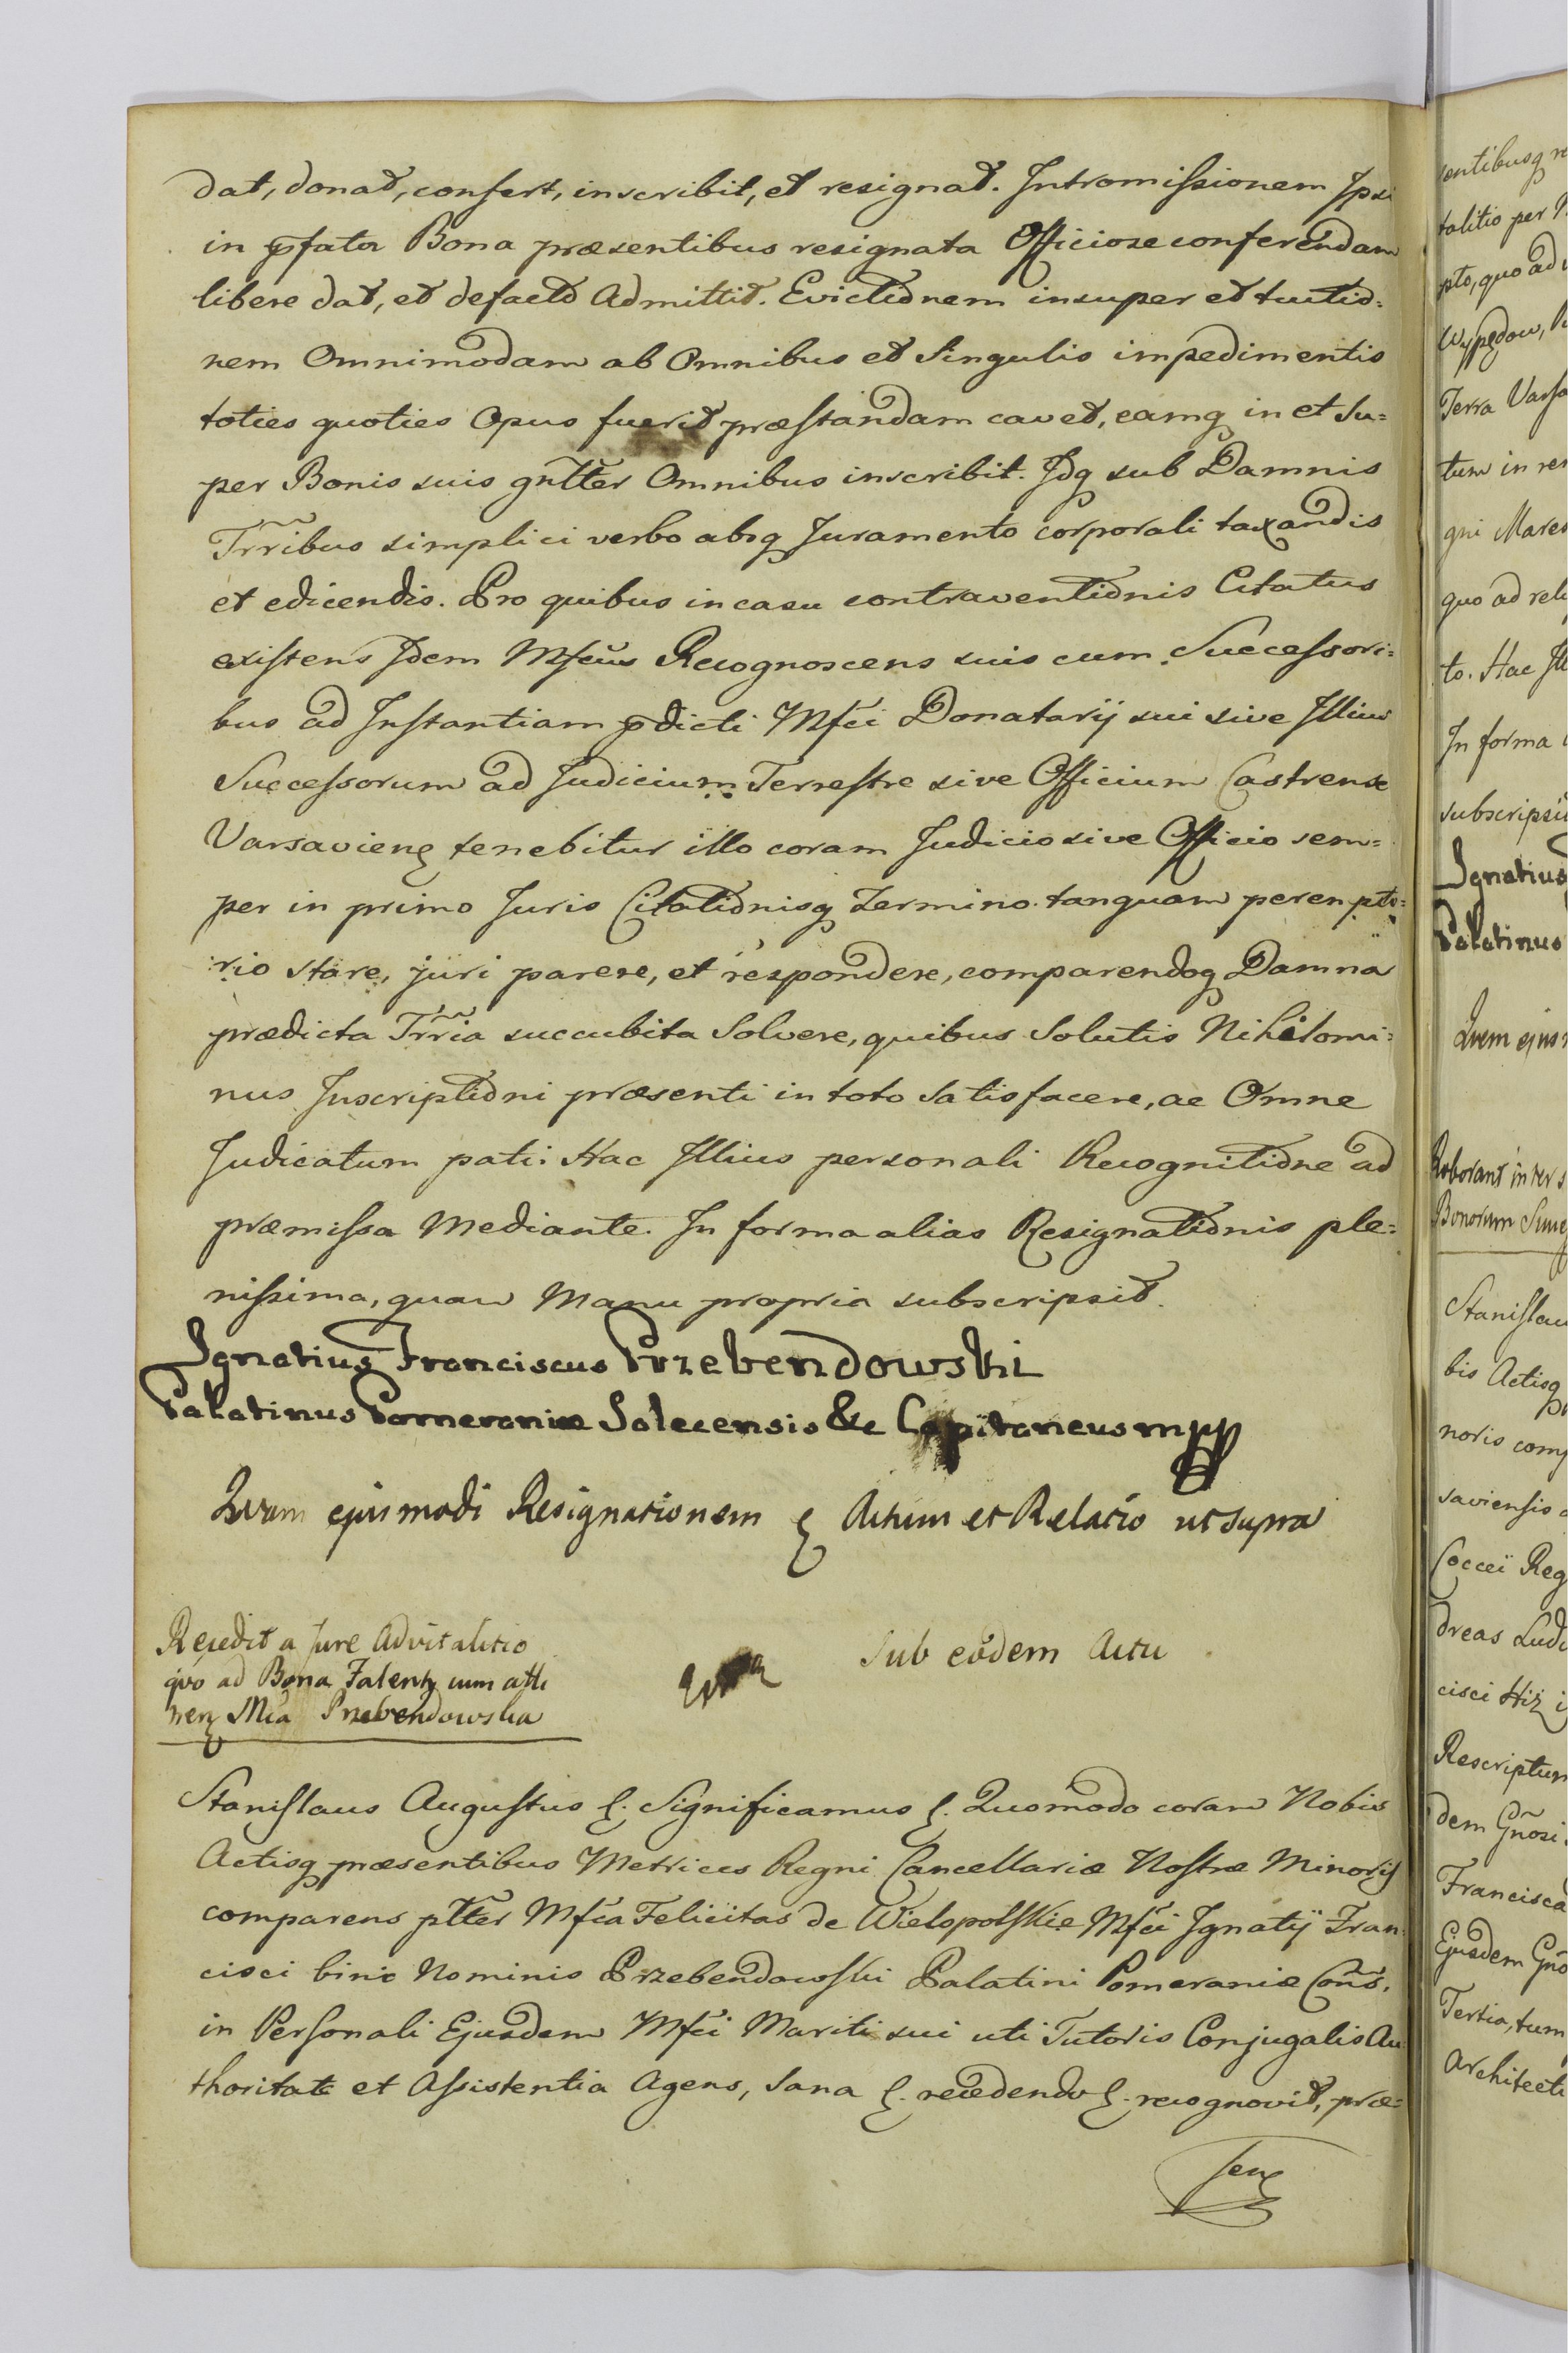 dat, donat, confert, inscribit, et resignat. Intromissionem Ipsi
in pfata Bona præsentibus resignata Officiose conferendam
libere dat, et defacto Admittit. Evictionem insuper et tuitio=
nem Omnimodam ab Omnibus et Singulis impedimentis
toties quoties Opus fuerit præstandam cavet, eamq in et Su=
per Bonis suis gnlter Omnibus inscribit. Idq sub Damnis
Trribus simplici verbo absq Juramento corporali taxandis
et edicendis. Pro quibus in casu contraventionis Citatus
existens Idem Mfcus Recognoscens suis cum Successori=
bus ad Instantiam pdicti Mfci Donatarij sui sive Illius
Successorum ad Judicium Terrestre sive Officium Castrense
Varsavien tenebitur illo coram Judicio sive Officio sem=
per in primo Juris Citationisq Termino tanquam perempto=
rio stare, juri parere, et respondere, comparendoq Damna
prædicta Trria succubita Solvere, quibus Solutis Nihilomi=
nus Inscriptioni præsenti in toto Satisfacere, ac Omne
Judicatum pati. Hac Illius personali Recognitione ad
præmissa Mediante. In forma alias Resignationis ple=
nissima, quam Manu propria subscripsit.
Ignatius Franciscus Przebendowski
Palatinus Pomeraniæ Solecensis &c Capitaneus mpp
Quam ejusmodi Resignationem Actum et Relatio ut supra
Recedit a Jure Advitalitio
quo ad Bona Falenty cum atti
nen Mca Przebendowska
Sub eodem Actu
Stanislaus Augustus Significamus Quomodo coram Nobis
Actisq præsentibus Metrices Regni Cancellariæ Nostræ Minoris
comparens plter Mfca Felicitas de Wielopolskie Mfci Ignatij Fran
cisci binis Nominis Przebendowski Palatini Pomeraniæ Cons.
in Personali Ejusdem Mfci Mariti sui uti Tutoris Conjugalis Au
thoritate et Assistentia Agens, Sana recedendo recognovit, præ=
sen